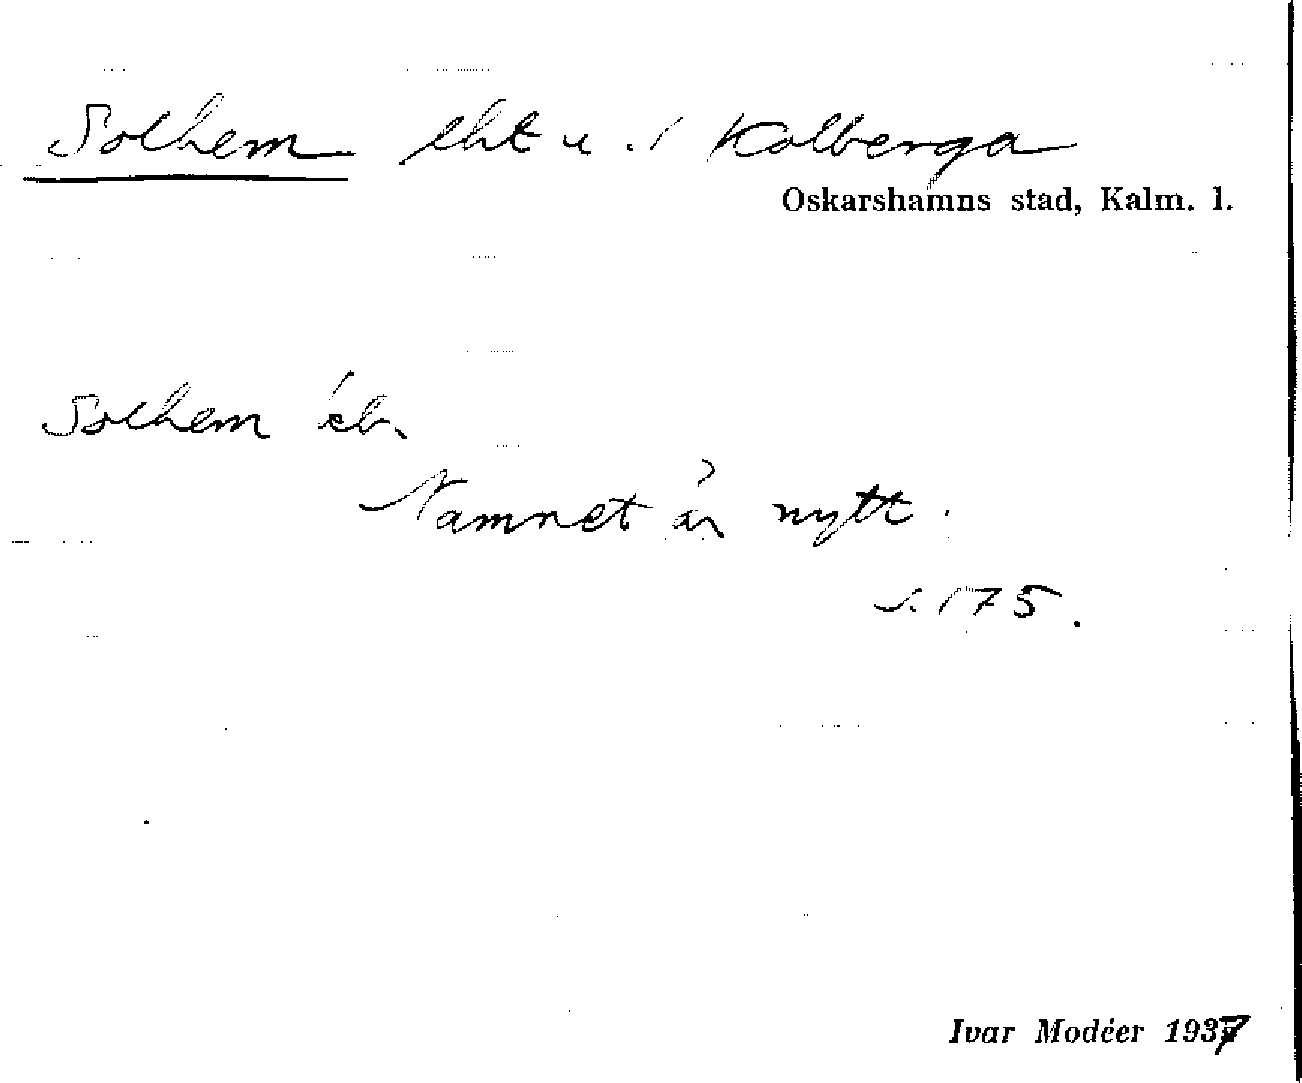 Solhem lht u. i Kolberga
Oskarshamns stad, Kalm. l.
Solhem äb.
Namnet är nytt.
s. 175.
Ivar Modéer 1937